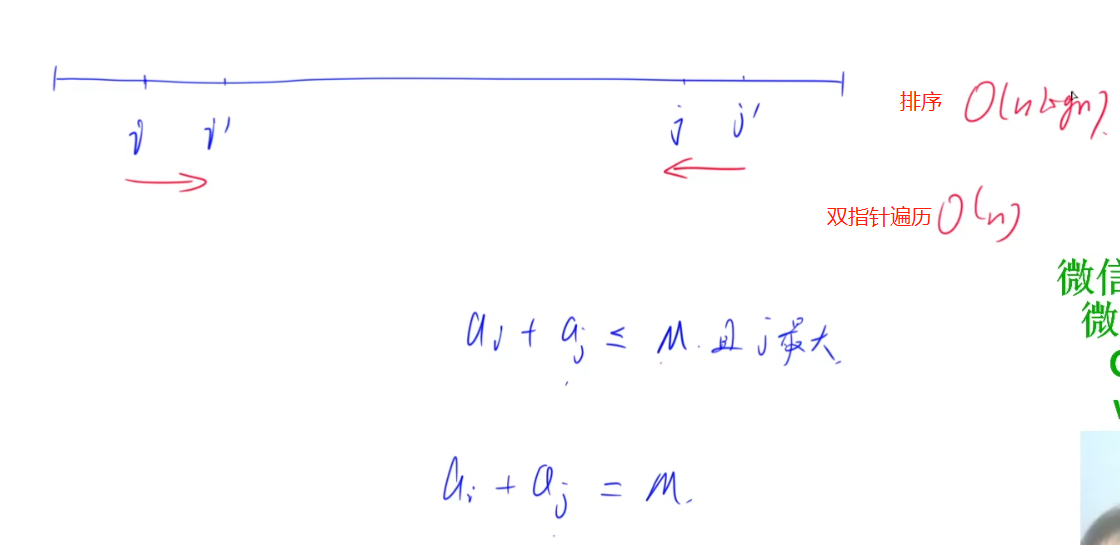 i i' j j'
排序 O(n log n).
双指针遍历 O(n)
微信
微
ai + aj ≤ M. 且 j 最大.
ai + aj = M.